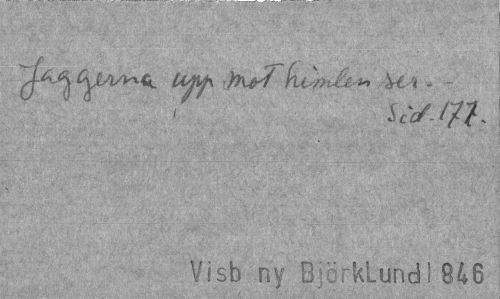 Jaggerna upp mot himlen ser. -
Sid. 177.
Visb ny BjörkLundl 846